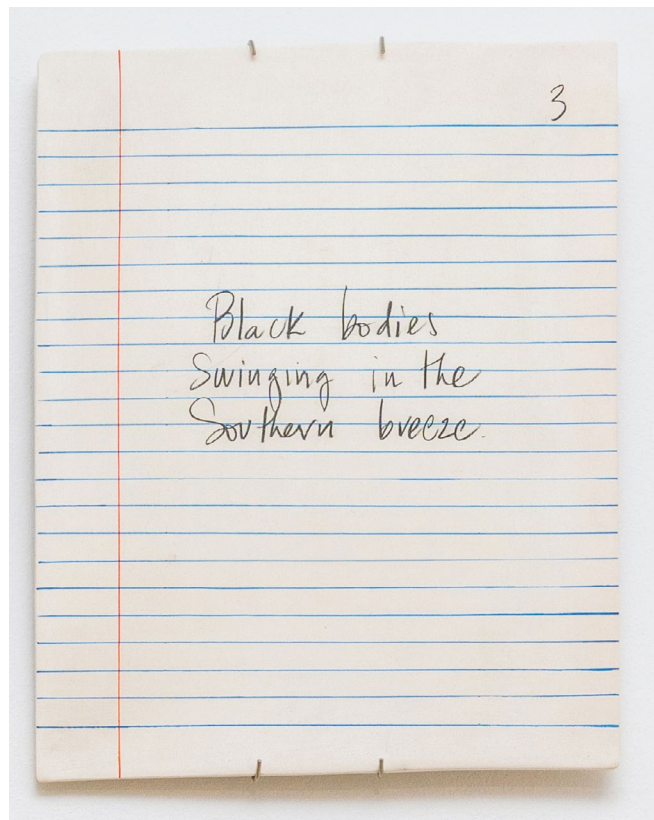 3
Black bodies
Swinging in the
Southern breeze.